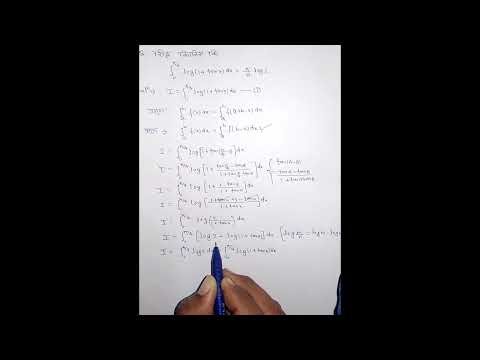 सिद्ध कीजिए कि
∫₀^π/4 log(1+tanx)dx = π/8 log2
I = ∫₀^π/4 log(1+tanx)dx — (1)
∫ₐ^b f(x)dx = ∫ₐ^b f(a+b-x)dx
∫₀^a f(x)dx = ∫₀^a f(a-x)dx
I = ∫₀^π/4 log[1+tan(π/4-x)]dx
I = ∫₀^π/4 log[1+ (tanπ/4-tanx)/(1+tanπ/4 tanx)]dx { tan(A-B) (tanA-tanB)/(1+tanAtanB)
I = ∫₀^π/4 log[1+ (1-tanx)/(1+tanx)]dx
I = ∫₀^π/4 log[(1+tanx+1-tanx)/(1+tanx)]dx
I = ∫₀^π/4 log[2/(1+tanx)]dx
I = ∫₀^π/4 [log2 - log(1+tanx)]dx { log m/n = logm - logn
I = ∫₀^π/4 log2 dx ∫₀^π/4 log(1+tanx)dx